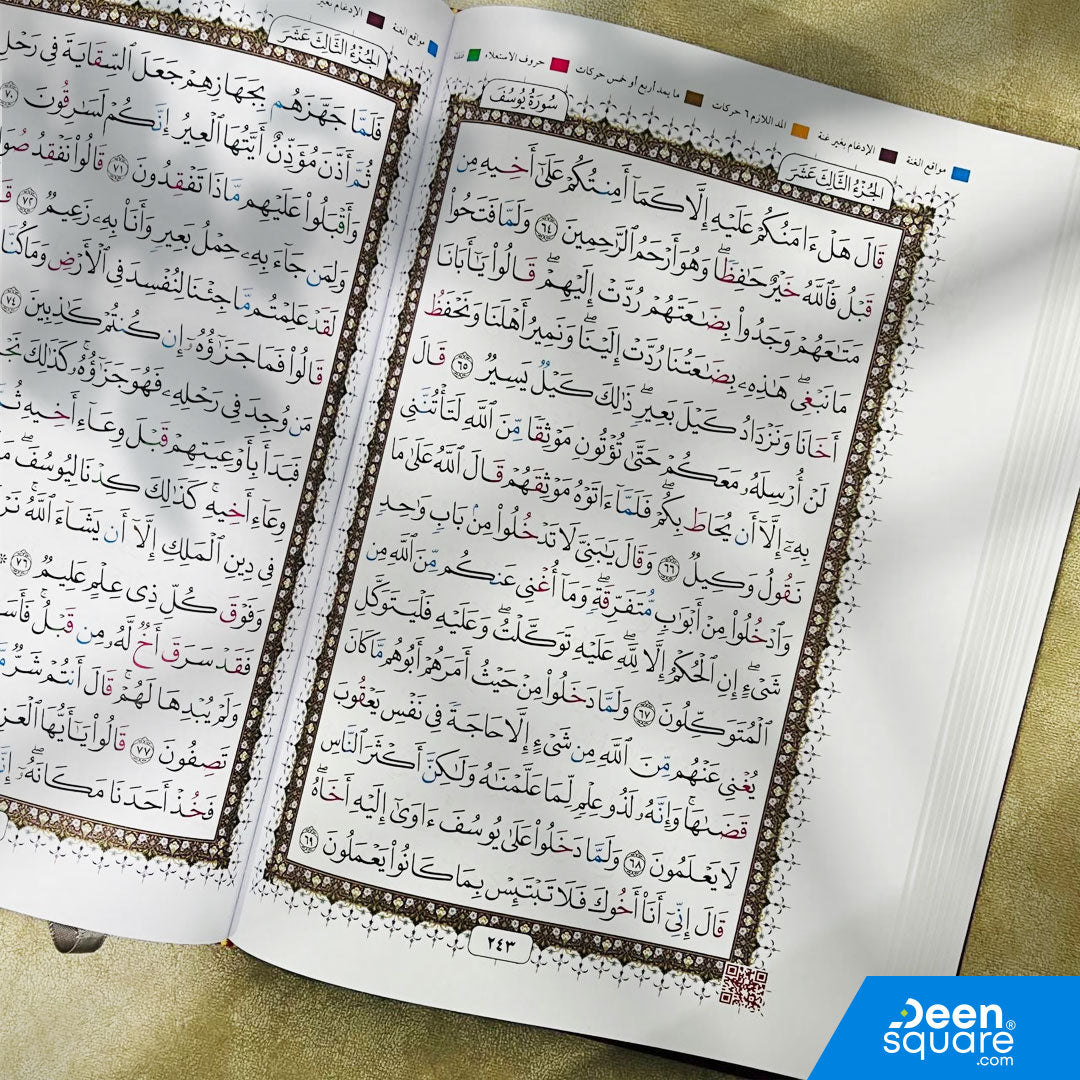 مواقع الغنة
الإدغام بغير غنة
المد اللازم ٦ حركات
ما يمد أربع أو خمس حركات
حروف الاستعلاء
قلقلة
الجُزْءُ الثَّالِثَ عَشَرَ
سُورَةُ يُوسُفَ
قَالَ هَلْ ءَامَنُكُمْ عَلَيْهِ إِلَّا كَمَآ أَمِنتُكُمْ عَلَىٰٓ أَخِيهِ مِن
قَبْلُ فَٱللَّهُ خَيْرٌ حَـٰفِظًۭا ۖ وَهُوَ أَرْحَمُ ٱلرَّٰحِمِينَ ٦٤ وَلَمَّا فَتَحُوا۟
مَتَـٰعَهُمْ وَجَدُوا۟ بِضَـٰعَتَهُمْ رُدَّتْ إِلَيْهِمْ ۖ قَالُوا۟ يَـٰٓأَبَانَا
مَا نَبْغِى ۖ هَـٰذِهِۦ بِضَـٰعَتُنَا رُدَّتْ إِلَيْنَا ۖ وَنَمِيرُ أَهْلَنَا وَنَحْفَظُ
أَخَانَا وَنَزْدَادُ كَيْلَ بَعِيرٍۢ ۖ ذَٰلِكَ كَيْلٌۭ يَسِيرٌۭ ٦٥ قَالَ
لَنْ أُرْسِلَهُۥ مَعَكُمْ حَتَّىٰ تُؤْتُونِ مَوْثِقًۭا مِّنَ ٱللَّهِ لَتَأْتُنَّنِى
بِهِۦٓ إِلَّآ أَن يُحَاطَ بِكُمْ ۖ فَلَمَّآ ءَاتَوْهُ مَوْثِقَهُمْ قَالَ ٱللَّهُ عَلَىٰ مَا
نَقُولُ وَكِيلٌۭ ٦٦ وَقَالَ يَـٰبَنِىَّ لَا تَدْخُلُوا۟ مِنۢ بَابٍۢ وَٰحِدٍۢ
وَٱدْخُلُوا۟ مِنْ أَبْوَٰبٍۢ مُّتَفَرِّقَةٍۢ ۖ وَمَآ أُغْنِى عَنكُم مِّنَ ٱللَّهِ مِن
شَىْءٍ ۖ إِنِ ٱلْحُكْمُ إِلَّا لِلَّهِ ۖ عَلَيْهِ تَوَكَّلْتُ ۖ وَعَلَيْهِ فَلْيَتَوَكَّلِ
ٱلْمُتَوَكِّلُونَ ٦٧ وَلَمَّا دَخَلُوا۟ مِنْ حَيْثُ أَمَرَهُمْ أَبُوهُم مَّا كَانَ
يُغْنِى عَنْهُم مِّنَ ٱللَّهِ مِن شَىْءٍ إِلَّا حَاجَةًۭ فِى نَفْسِ يَعْقُوبَ
قَضَىٰهَا ۚ وَإِنَّهُۥ لَذُو عِلْمٍۢ لِّمَا عَلَّمْنَـٰهُ وَلَـٰكِنَّ أَكْثَرَ ٱلنَّاسِ
لَا يَعْلَمُونَ ٦٨ وَلَمَّا دَخَلُوا۟ عَلَىٰ يُوسُفَ ءَاوَىٰٓ إِلَيْهِ أَخَاهُ ۖ
قَالَ إِنِّىٓ أَنَا۠ أَخُوكَ فَلَا تَبْتَئِسْ بِمَا كَانُوا۟ يَعْمَلُونَ ٦٩
٢٤٣
مواقع الغنة
الإدغام بغير
الجُزْءُ الثَّالِثَ عَشَرَ
فَلَمَّا جَهَّزَهُم بِجَهَازِهِمْ جَعَلَ ٱلسِّقَايَةَ فِى رَحْلِ
ثُمَّ أَذَّنَ مُؤَذِّنٌ أَيَّتُهَا ٱلْعِيرُ إِنَّكُمْ لَسَـٰرِقُونَ ٧٠
وَأَقْبَلُوا۟ عَلَيْهِم مَّاذَا تَفْقِدُونَ ٧١ قَالُوا۟ نَفْقِدُ
وَلِمَن جَآءَ بِهِۦ حِمْلُ بَعِيرٍۢ وَأَنَا۠ بِهِۦ زَعِيمٌۭ ٧٢
لَقَدْ عَلِمْتُم مَّا جِئْنَا لِنُفْسِدَ فِى ٱلْأَرْضِ وَمَا كُنَّا
قَالُوا۟ فَمَا جَزَٰٓؤُهُۥٓ إِن كُنتُمْ كَـٰذِبِينَ ٧٤
مَن وُجِدَ فِى رَحْلِهِۦ فَهُوَ جَزَٰٓؤُهُۥ ۚ كَذَٰلِكَ
فَبَدَأَ بِأَوْعِيَتِهِمْ قَبْلَ وِعَآءِ أَخِيهِ
وِعَآءِ أَخِيهِ ۚ كَذَٰلِكَ كِدْنَا لِيُوسُفَ ۖ
فِى دِينِ ٱلْمَلِكِ إِلَّآ أَن يَشَآءَ ٱللَّهُ ۚ
وَفَوْقَ كُلِّ ذِى عِلْمٍ عَلِيمٌۭ ٧٦
فَقَدْ سَرَقَ أَخٌۭ لَّهُۥ مِن قَبْلُ ۚ
وَلَمْ يُبْدِهَا لَهُمْ ۚ قَالَ أَنتُمْ شَرٌّۭ
تَصِفُونَ ٧٧ قَالُوا۟ يَـٰٓأَيُّهَا
فَخُذْ أَحَدَنَا مَكَانَهُۥٓ ۖ
Deen
square®
.com